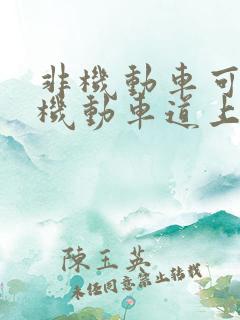 非機動車可
機動車道上
陳玉英
未经同意禁止转载